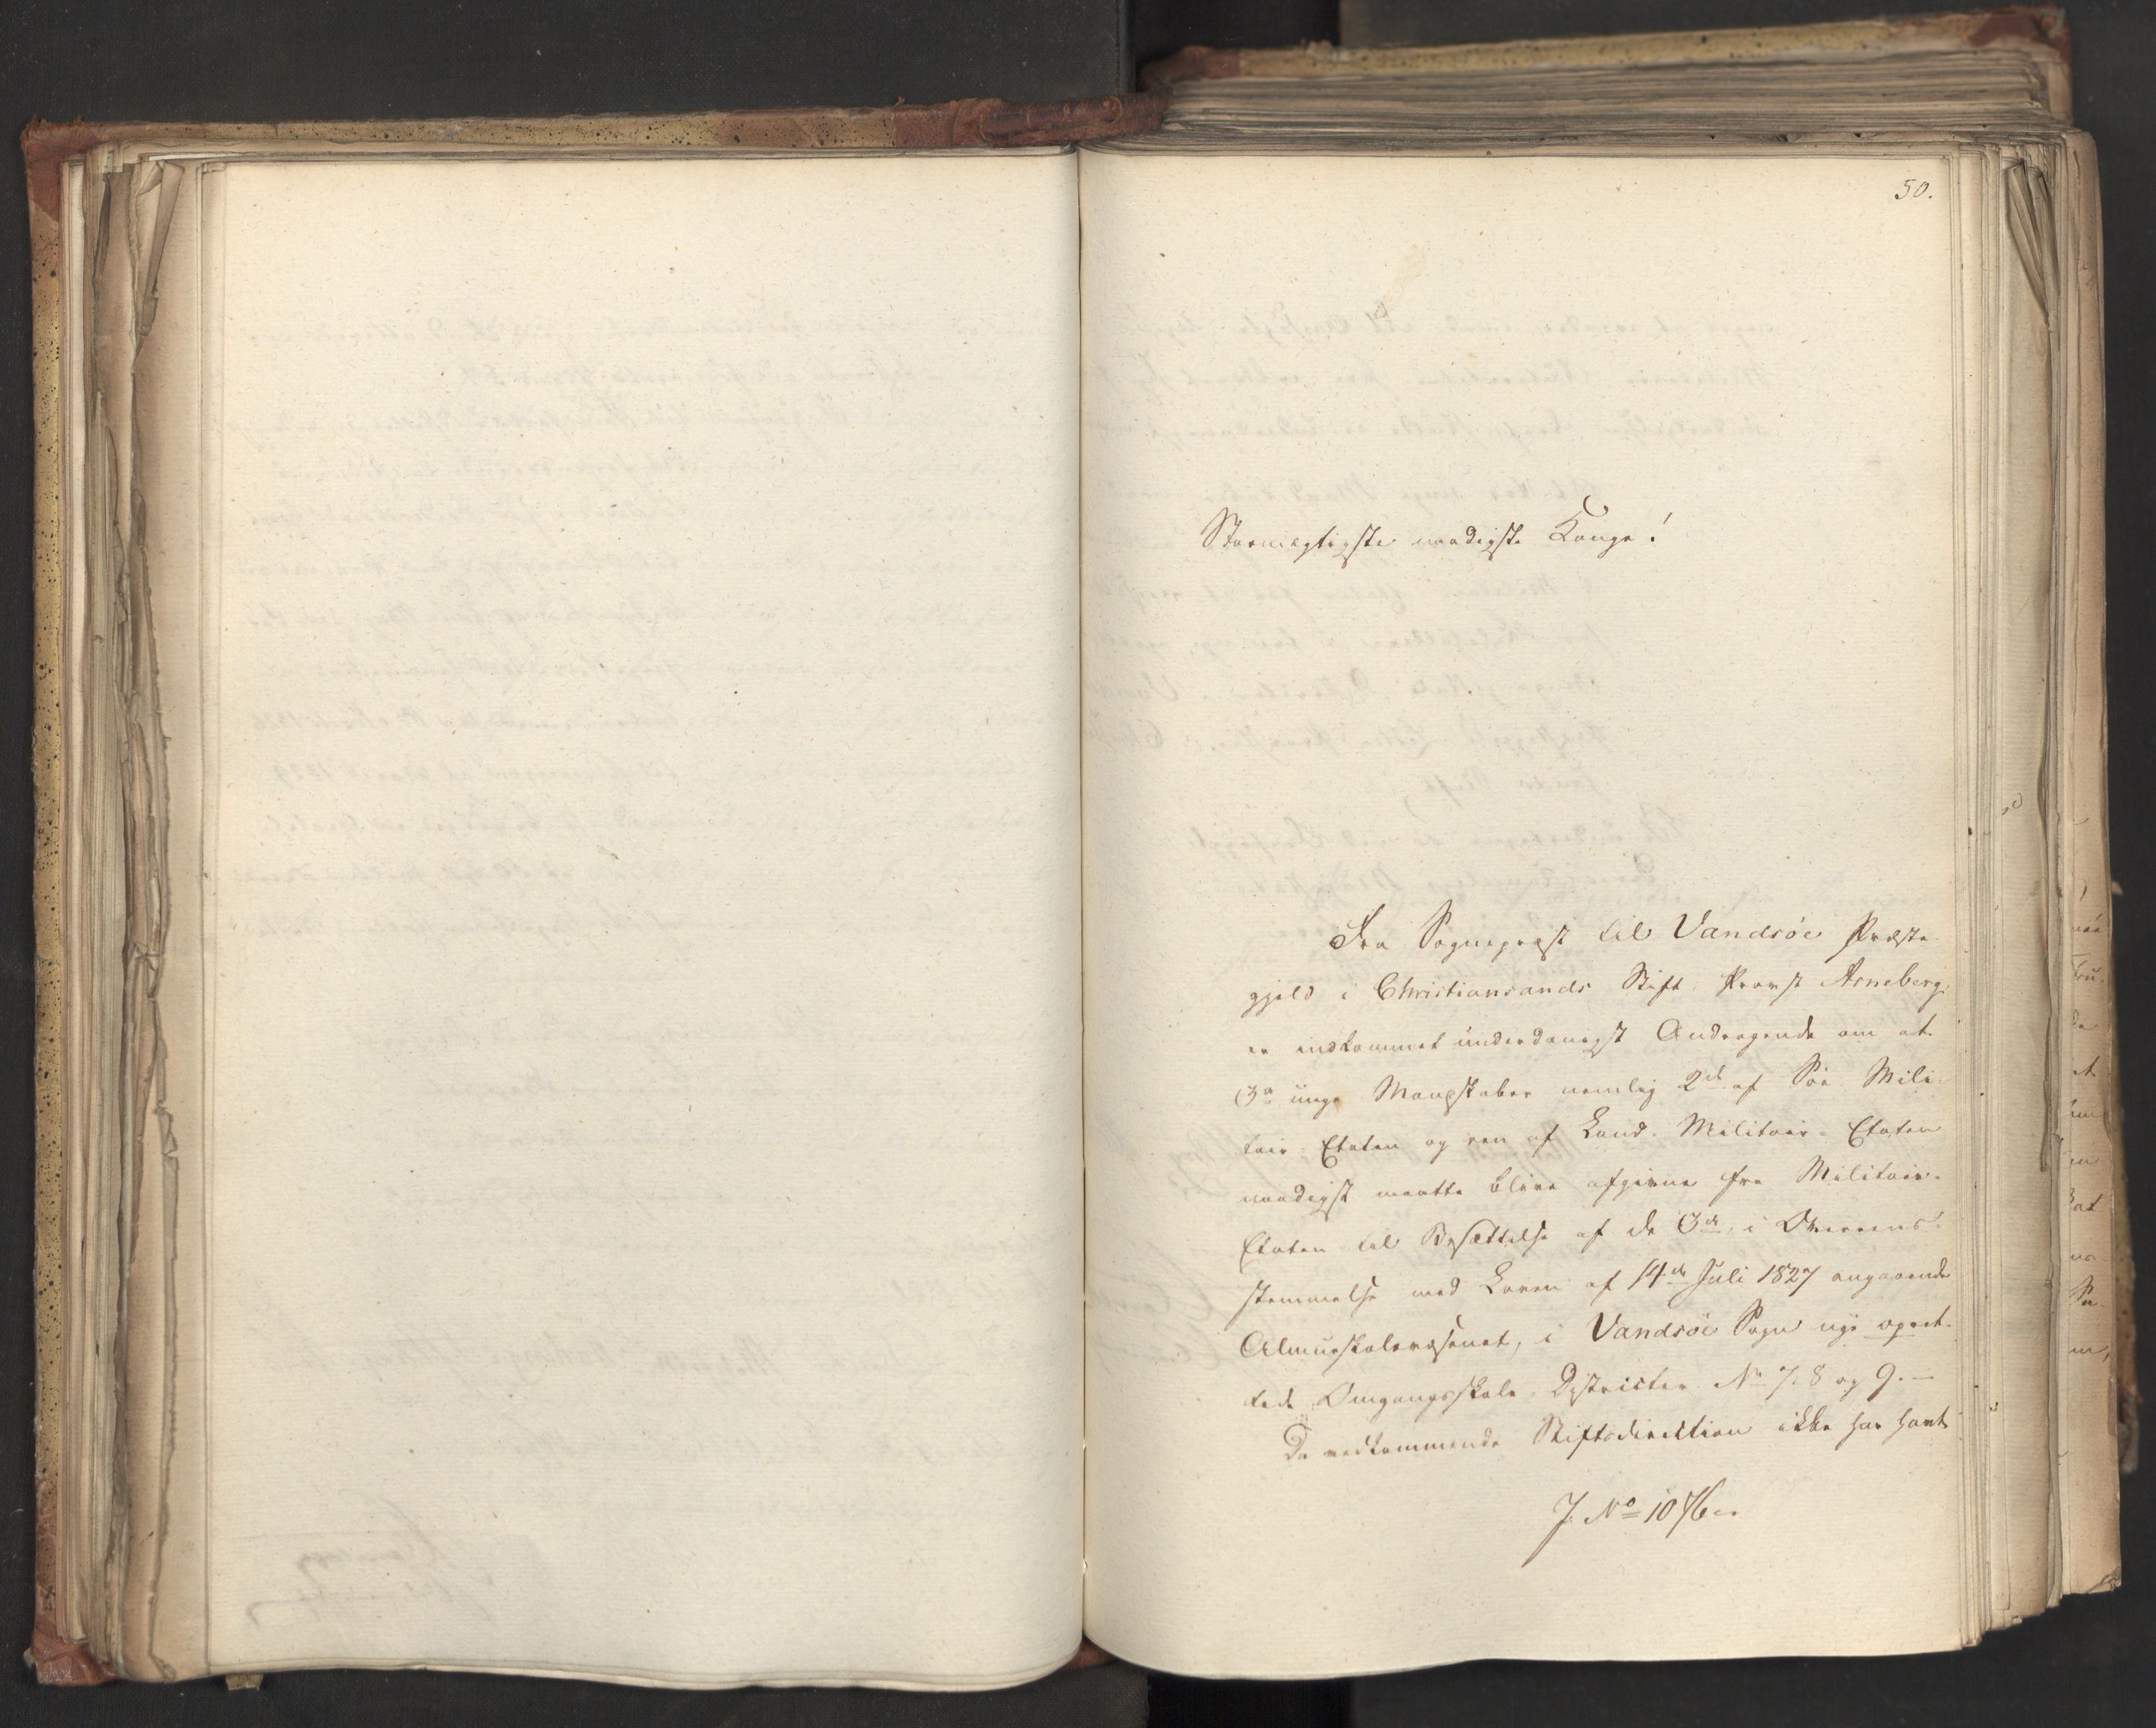 50.
Stormægtigste naadigste Konge!
Fra Sognepræst til Vandsöe Præste-
gjeld i Christiansands Stift, Provst Arneberg,
er indkommet underdanigst Andragende om at
3de unge Mandskaber nemlig 2de af Söe Mili-
tair-Etaten og een af Land-Militair-Etaten
naadigst maatte blive afgivne fra Militair-
Etaten til Besættelse af de 3de i Overeens-
stemmelse med Loven af 14de Juli 1827 angaaende
Almueskolevæsenet, i Vandsöe Sogn nye opret-
tede Omgangsskole-Districter No 7. 8 og 9.—
Da vedkommende Stiftsdirection ikke har havt
J. No 1076